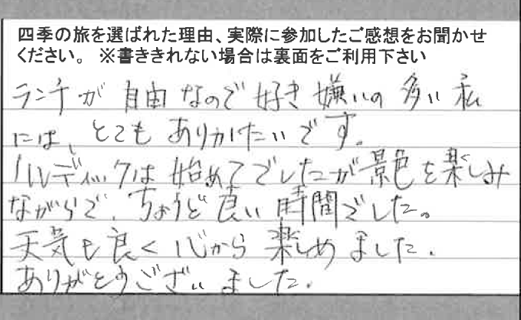 四季の旅を選ばれた理由、実際に参加したご感想をお聞かせ
ください。 ※書ききれない場合は裏面をご利用下さい
ランチが自由なので好き嫌いの多い私
には、とてもありがたいです。
ノルディックは始めてでしたが景色を楽しみ
ながらで、ちょうど良い時間でした。
天気も良く心から楽しめました.
ありがとうございました.